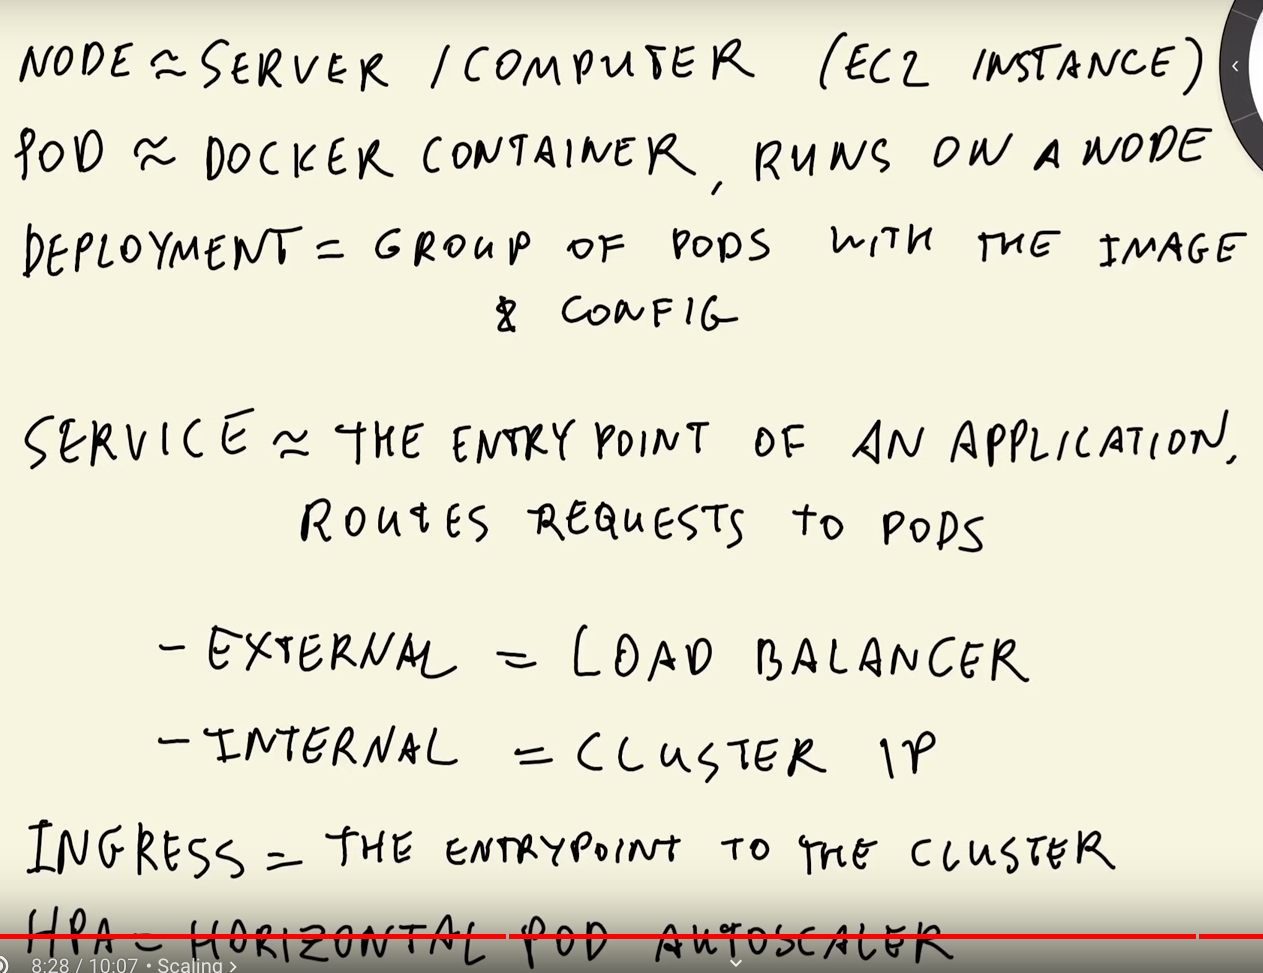 NODE ≈ SERVER / COMPUTER (EC2 INSTANCE)
POD ≈ DOCKER CONTAINER, RUNS ON A NODE
DEPLOYMENT = GROUP OF PODS WITH THE IMAGE
& CONFIG
SERVICE ≈ THE ENTRY POINT OF AN APPLICATION,
ROUTES REQUESTS TO PODS
- EXTERNAL = LOAD BALANCER
- INTERNAL = CLUSTER IP
INGRESS = THE ENTRYPOINT TO THE CLUSTER
HPA = HORIZONTAL POD AUTOSCALER
8:28 / 10:07 • Scaling >